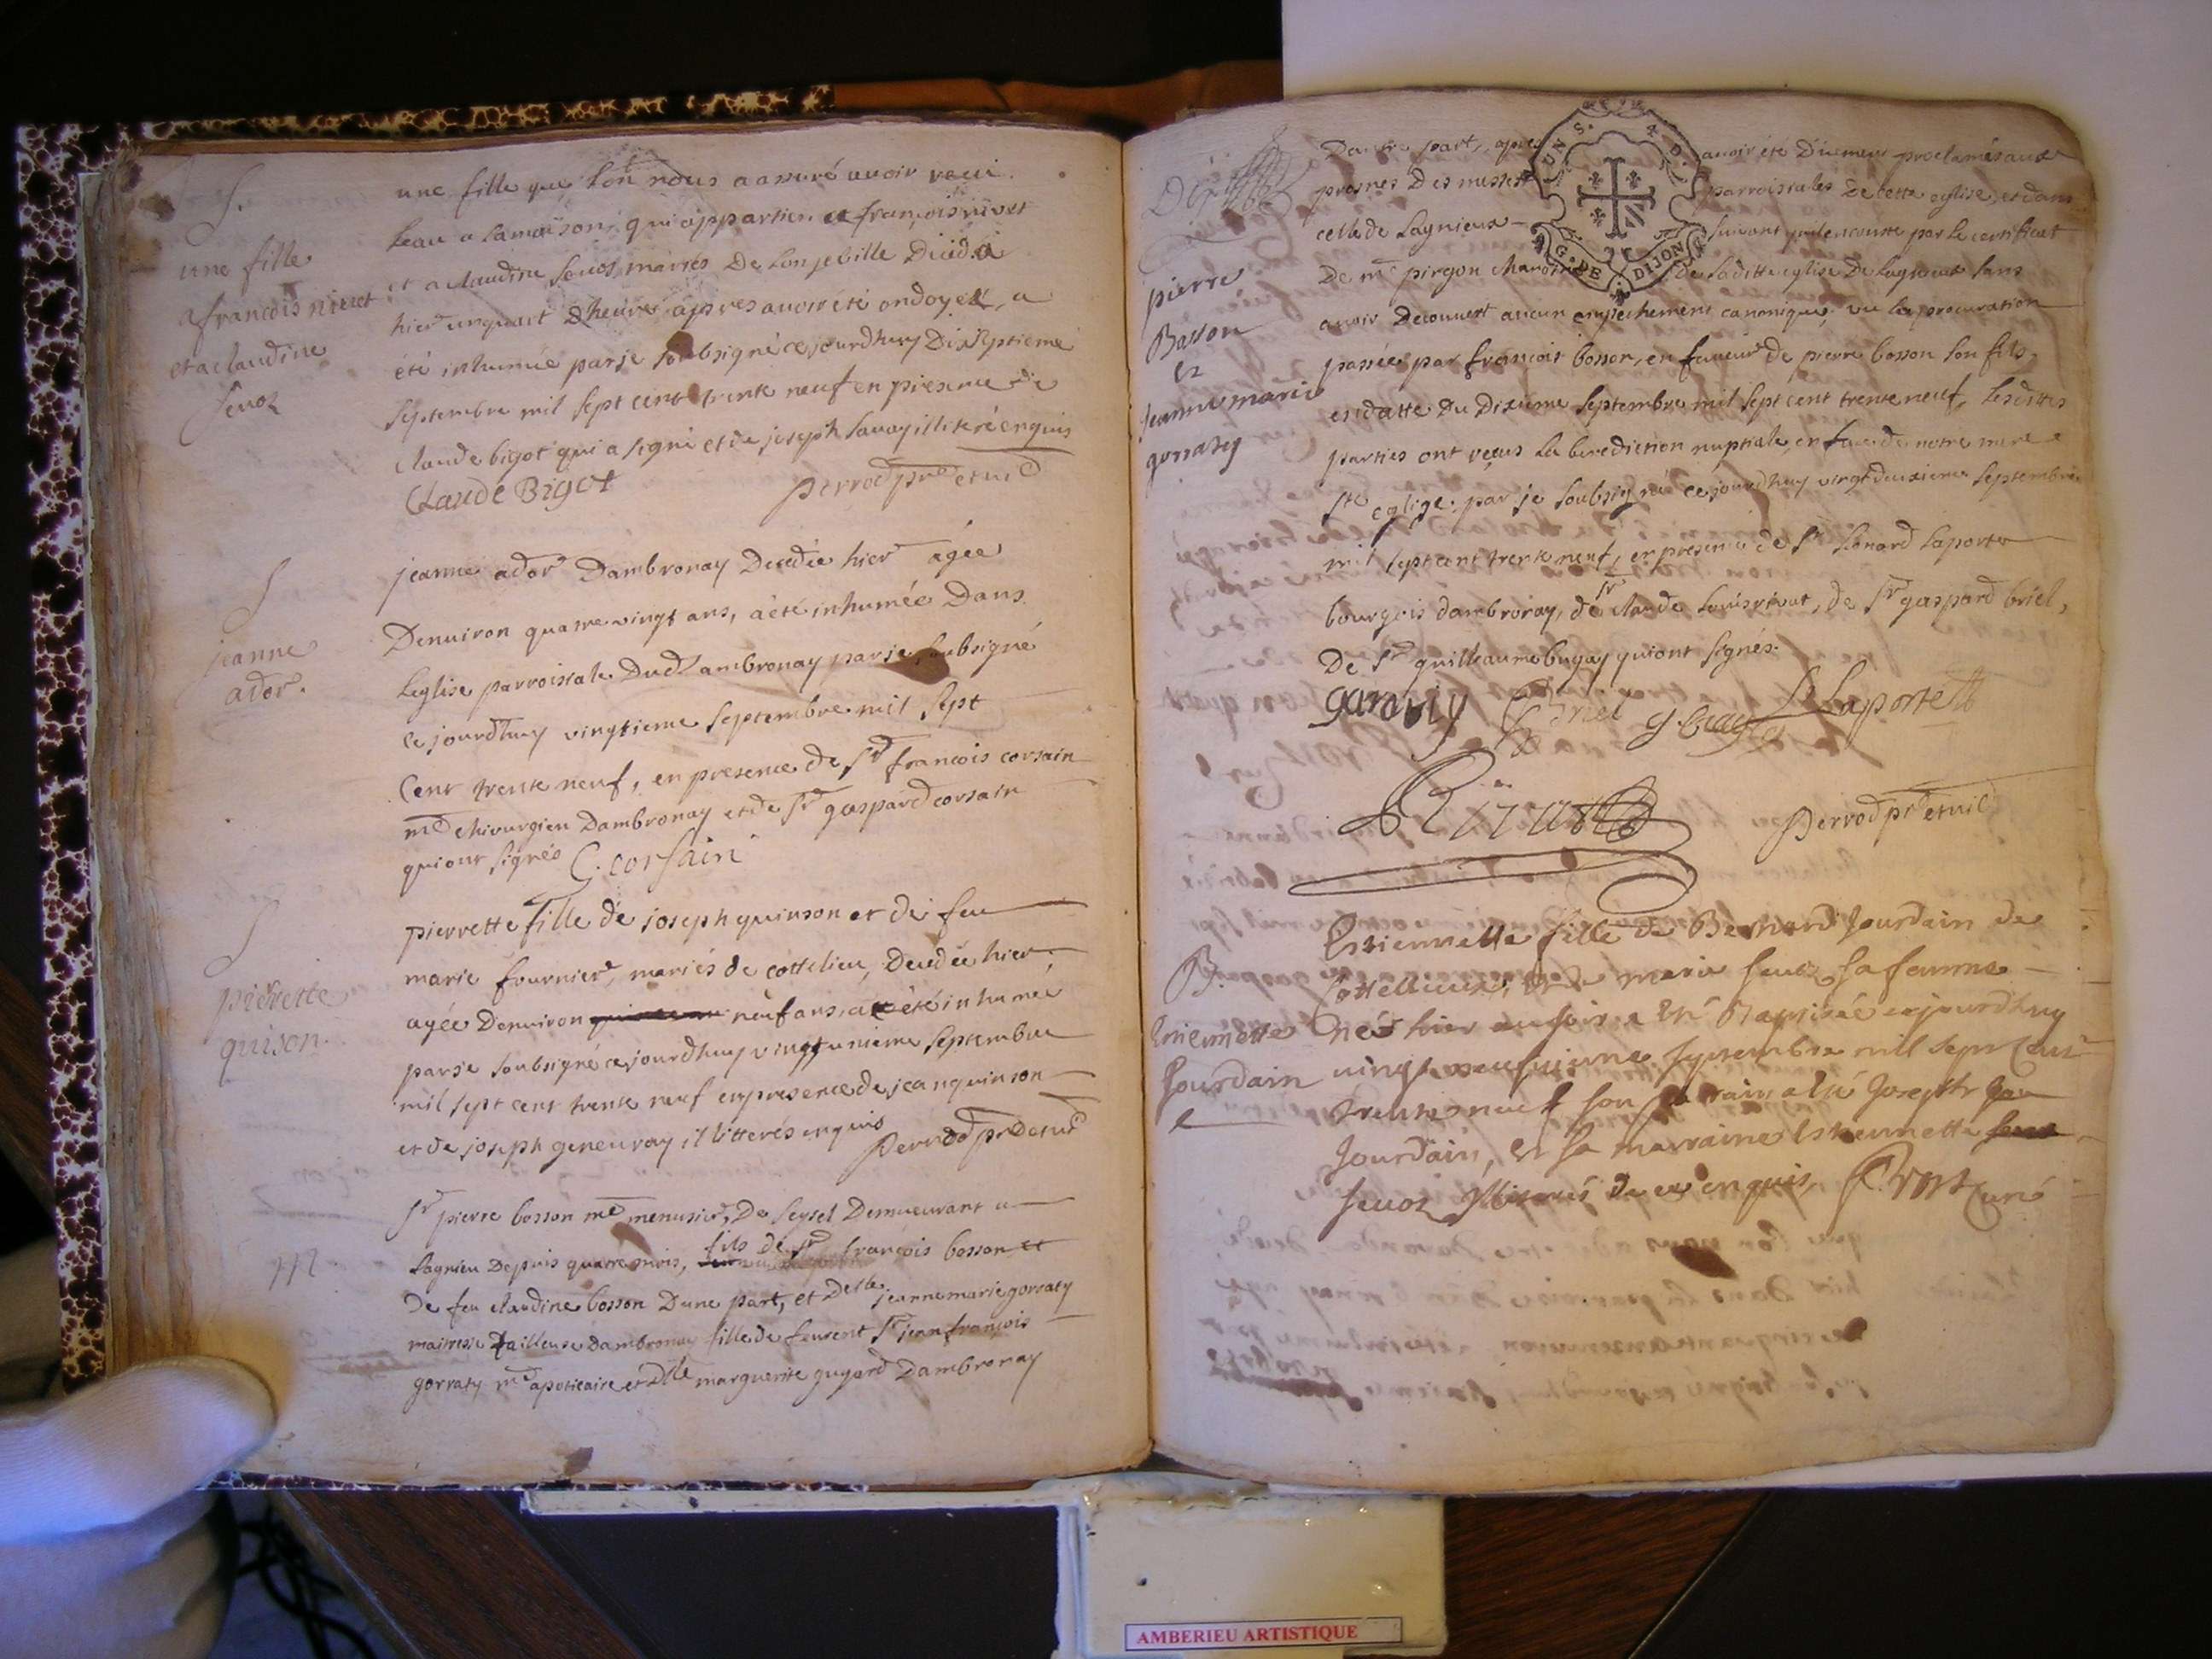 S.
une fille
a francois nivet
et a claudine
sevoz
une fille que l'on nous a assuré avoir reçu
leau a la maison, qui appartien a françois nivet
et a claudine sevoz mariés De Longeville Décédé
hier un quart Dheure apres avoir été ondoyée, a
été inhumée par je soubsigné cejourdhuy Dixseptieme
septembre mil sept cent trente neuf en presence de
claude bigot qui a signé et de joseph savay illiteré enquis
Claude Bigot
perrod pre et vic
S
jeanne
ador.
jeanne ador Dambronay Decedée hier agée
Denuiron quatre vingt ans, a été inhumée Dans
Leglise parroissiale Dud ambronay par je soubsigné
cejourdhuy vingtieme septembre mil sept
Cent trente neuf, en presence de sr francois corsain
me chirurgien Dambronay et de sr gaspard corsain
qui ont signés G. corsain
S
pierrette
quison.
pierrette fille de joseph quinson et de feu
marie fournier, mariés de cottelieu, Decedée hier,
agée Denuiron neuf ans, a été inhumée
par je soubsigné cejourdhuy vingtunieme septembre
mil sept cent trente neuf en presence de jean quinson
et de joseph geneuray illitterés enquis
Perrod pre et vic
M
Sr pierre bosson me menusier, De seysel Demeurant a
Lagnieu Depuis quatre mois, fils de sr françois bosson et
De feu claudine bosson Dune part, et Delle jeanne marie gorraty
maitresse tailleuse Dambronay fille de feu sr jean françois
gorraty me apoticaire et Dlle marguerite guyard Dambronay
pierre
Basson
et
Jeanne marie
gorraty
Dautre part, apres avoir été Duement proclamés aux
prosnes Des messes parroissiales de cette eglise, et dans
celle de Lagnieux suivant quil en conste par le certificat
De mre pirgon chanoine de laditte eglise De Lagnieu sans
avoir Decouvert aucun empechement canonique, vu la procuration
passée par françois bosson, en faveur de pierre bosson son fils,
en datte Du Dixieme septembre mil sept cent trente neuf, Lesdittes
parties ont reçus La benediction nuptiale en face de notre mere
ste eglise, par je soubsigné cejourdhuy vingt deuxieme septembre
mil sept cent trente neuf, en presence de sr Lionard Laporte
bourgois dambronay, de sr claude Louis rivat, de sr gaspard briel,
De sr guilleaume bugay qui ont signés.
garaty Briel g. bugay L Laporte
Rivat
Perrod pre et vic
B.
Estiennette
Jourdain
Estiennette fille de Bernard Jourdain de
Cottellieux, et de marie sevoz sa femme
née hier au soir a été Baptisée cejourdhuy
vingt neufvieme septembre mil sept cent
trente neuf son parrain a été Joseph
Jourdain, et sa marraine Estiennette
sevoz illiterés de ce enquis, Prost curé
UN S. 4 D.
G. DE DIJON
AMBERIEU ARTISTIQUE